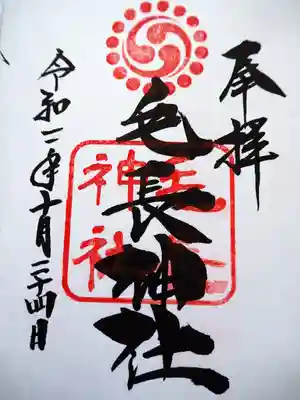 奉拝
毛長神社
令和二年十月二十四日
毛長
神社